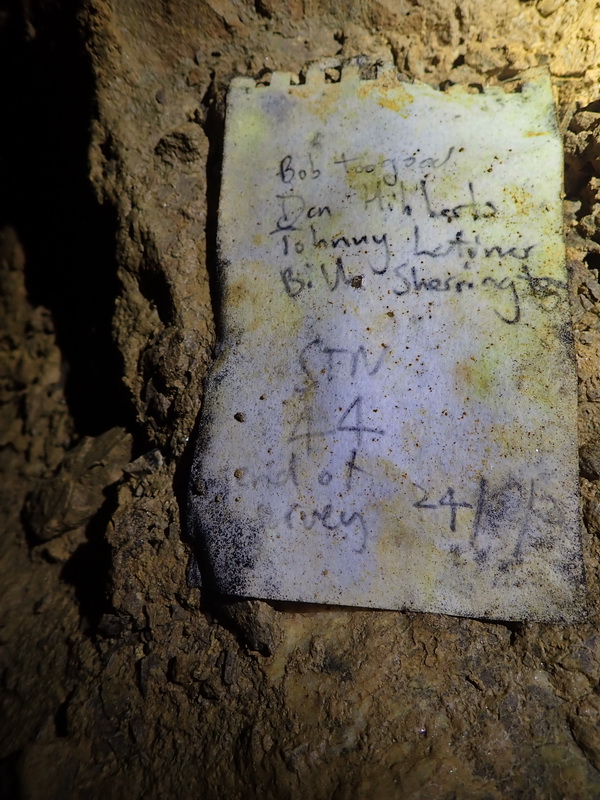 Bob Toogood
Dan Hibberts
Johnny Latimer
Bill Sherrington
STN
44
end of
survey 24/